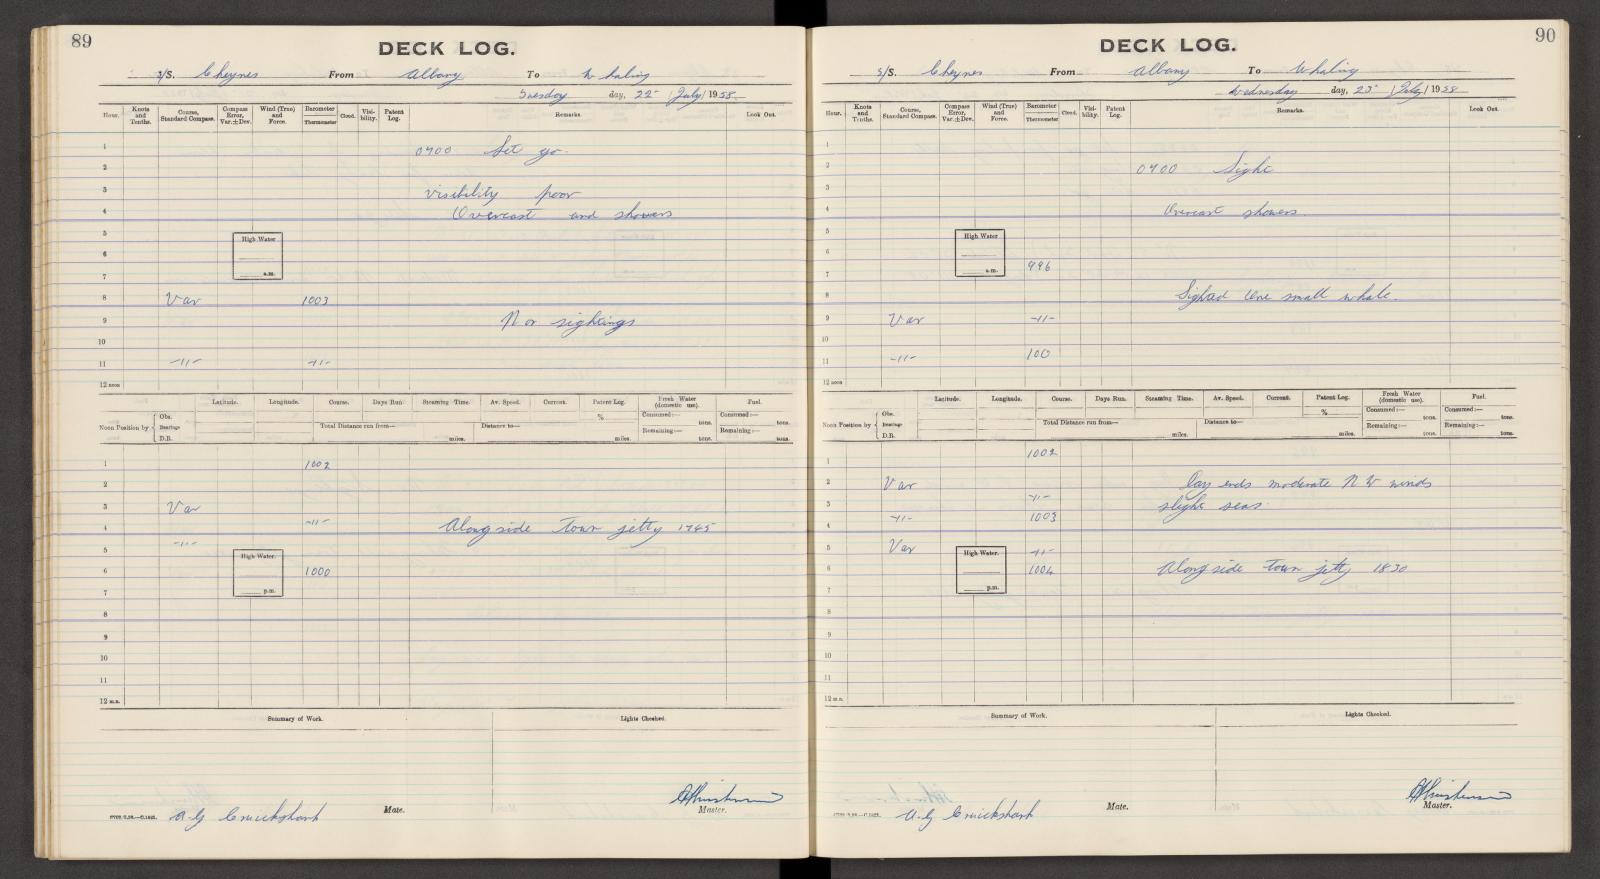 89
DECK LOG.
S/S. Cheynes From Albany To Whaling
Tuesday day, 22 / July / 1958
Hour. Knots and Tenths. Course, Standard Compass. Compass Error, Var. ± Dev. Wind (True) and Force. Barometer Thermometer Cloud. Visibility. Patent Log. Remarks. Look Out.
1 0700 Set go
2
3 visibility poor
4 Overcast and showers
5
High Water
6
7 a.m.
8 Var 1003
9 Nor sightings
10
11 -11- -11-
12 noon
Latitude. Longitude. Course. Days Run. Steaming Time. Av. Speed. Current. Patent Log. Fresh Water (domestic use). Fuel.
Noon Position by Obs. Bearings D.R. Total Distance run from— miles. Distance to— miles. % Consumed:— tons. Remaining:— tons. Consumed:— tons. Remaining:— tons.
1 1002
2
3 Var
4 -11- Alongside town jetty 1745
-11-
5
High Water.
6 1000
7 p.m.
8
9
10
11
12 m.n.
Summary of Work. Lights Checked.
A. G Cruickshank Mate. Master.
90
DECK LOG.
S/S. Cheynes From Albany To Whaling
Wednesday day, 23 / July / 1958
Hour. Knots and Tenths. Course, Standard Compass. Compass Error, Var. ± Dev. Wind (True) and Force. Barometer Thermometer Cloud. Visibility. Patent Log. Remarks. Look Out.
1
2 0700 Sight
3
4 Overcast showers.
5
High Water
6
7 a.m. 996
8 Sighted one small whale.
9 Var -11-
10
11 -11- 100
12 noon
Latitude. Longitude. Course. Days Run. Steaming Time. Av. Speed. Current. Patent Log. Fresh Water (domestic use). Fuel.
Noon Position by Obs. Bearings D.R. Total Distance run from— miles. Distance to— miles. % Consumed:— tons. Remaining:— tons. Consumed:— tons. Remaining:— tons.
1 1002
2 Var Day ends moderate N W winds
3 -11- slight seas.
4 -11- 1003
5 Var -11-
High Water.
6 1004 Alongside town jetty 1830
7 p.m.
8
9
10
11
12 m.n.
Summary of Work. Lights Checked.
A. G Cruickshank Mate. Master.